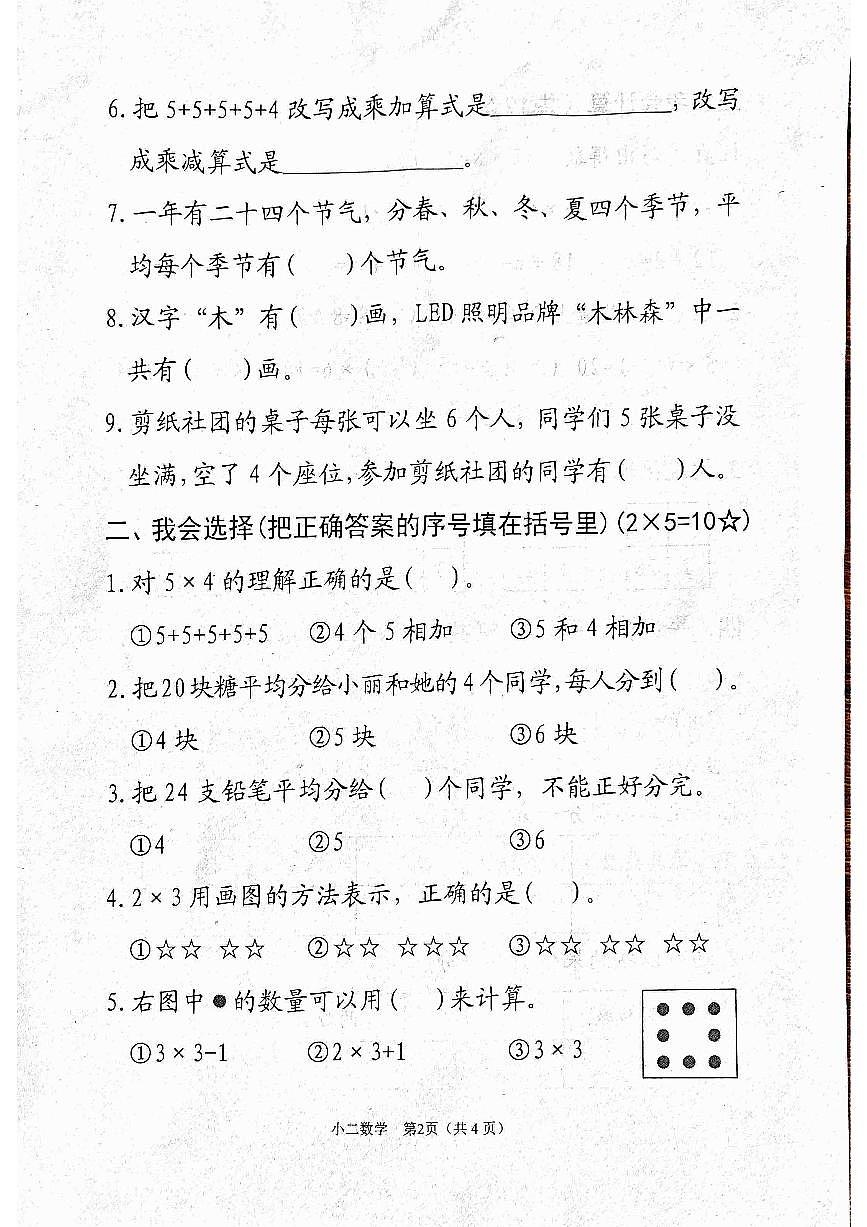 6.把 5+5+5+5+4 改写成乘加算式是______________，改写
成乘减算式是______________。
7.一年有二十四个节气，分春、秋、冬、夏四个季节，平
均每个季节有(    )个节气。
8.汉字“木”有(    )画，LED 照明品牌“木林森”中一
共有(    )画。
9.剪纸社团的桌子每张可以坐 6 个人，同学们 5 张桌子没
坐满,空了 4 个座位,参加剪纸社团的同学有(    )人。
二、我会选择(把正确答案的序号填在括号里)(2×5=10☆)
1.对 5×4 的理解正确的是(    )。
①5+5+5+5+5 ②4 个 5 相加 ③5 和 4 相加
2.把20块糖平均分给小丽和她的4个同学,每人分到(    )。
①4 块 ②5 块 ③6 块
3.把 24 支铅笔平均分给(    )个同学，不能正好分完。
①4 ②5 ③6
4.2×3 用画图的方法表示，正确的是(    )。
①☆☆ ☆☆ ②☆☆ ☆☆☆ ③☆☆ ☆☆ ☆☆
5.右图中●的数量可以用(    )来计算。
①3×3-1 ②2×3+1 ③3×3
小二数学 第2页（共4页）